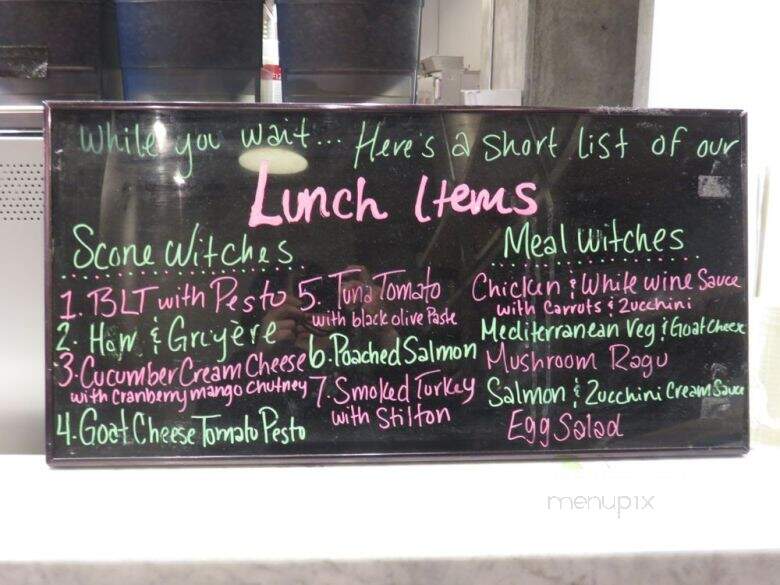 While you wait... Here's a short list of our
Lunch Items
Scone Witches
1. BLT with Pesto
2. Ham & Gruyère
3. Cucumber Cream Cheese
with Cranberry mango Chutney
4. Goat Cheese Tomato Pesto
5. Tuna Tomato
with black olive Paste
6. Poached Salmon
7. Smoked Turkey
with Stilton
Meal Witches
Chicken & White wine Sauce
with Carrots & Zucchini
Mediterranean Veg & Goat Cheese
Mushroom Ragu
Salmon & Zucchini Cream Sauce
Egg Salad
menupix